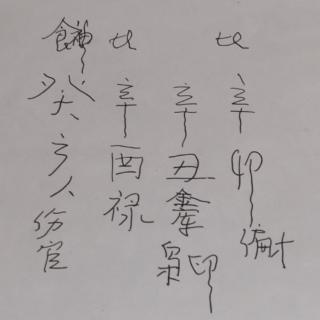 比辛卯偏才
辛丑枭印
比辛酉禄
食神癸亥伤官